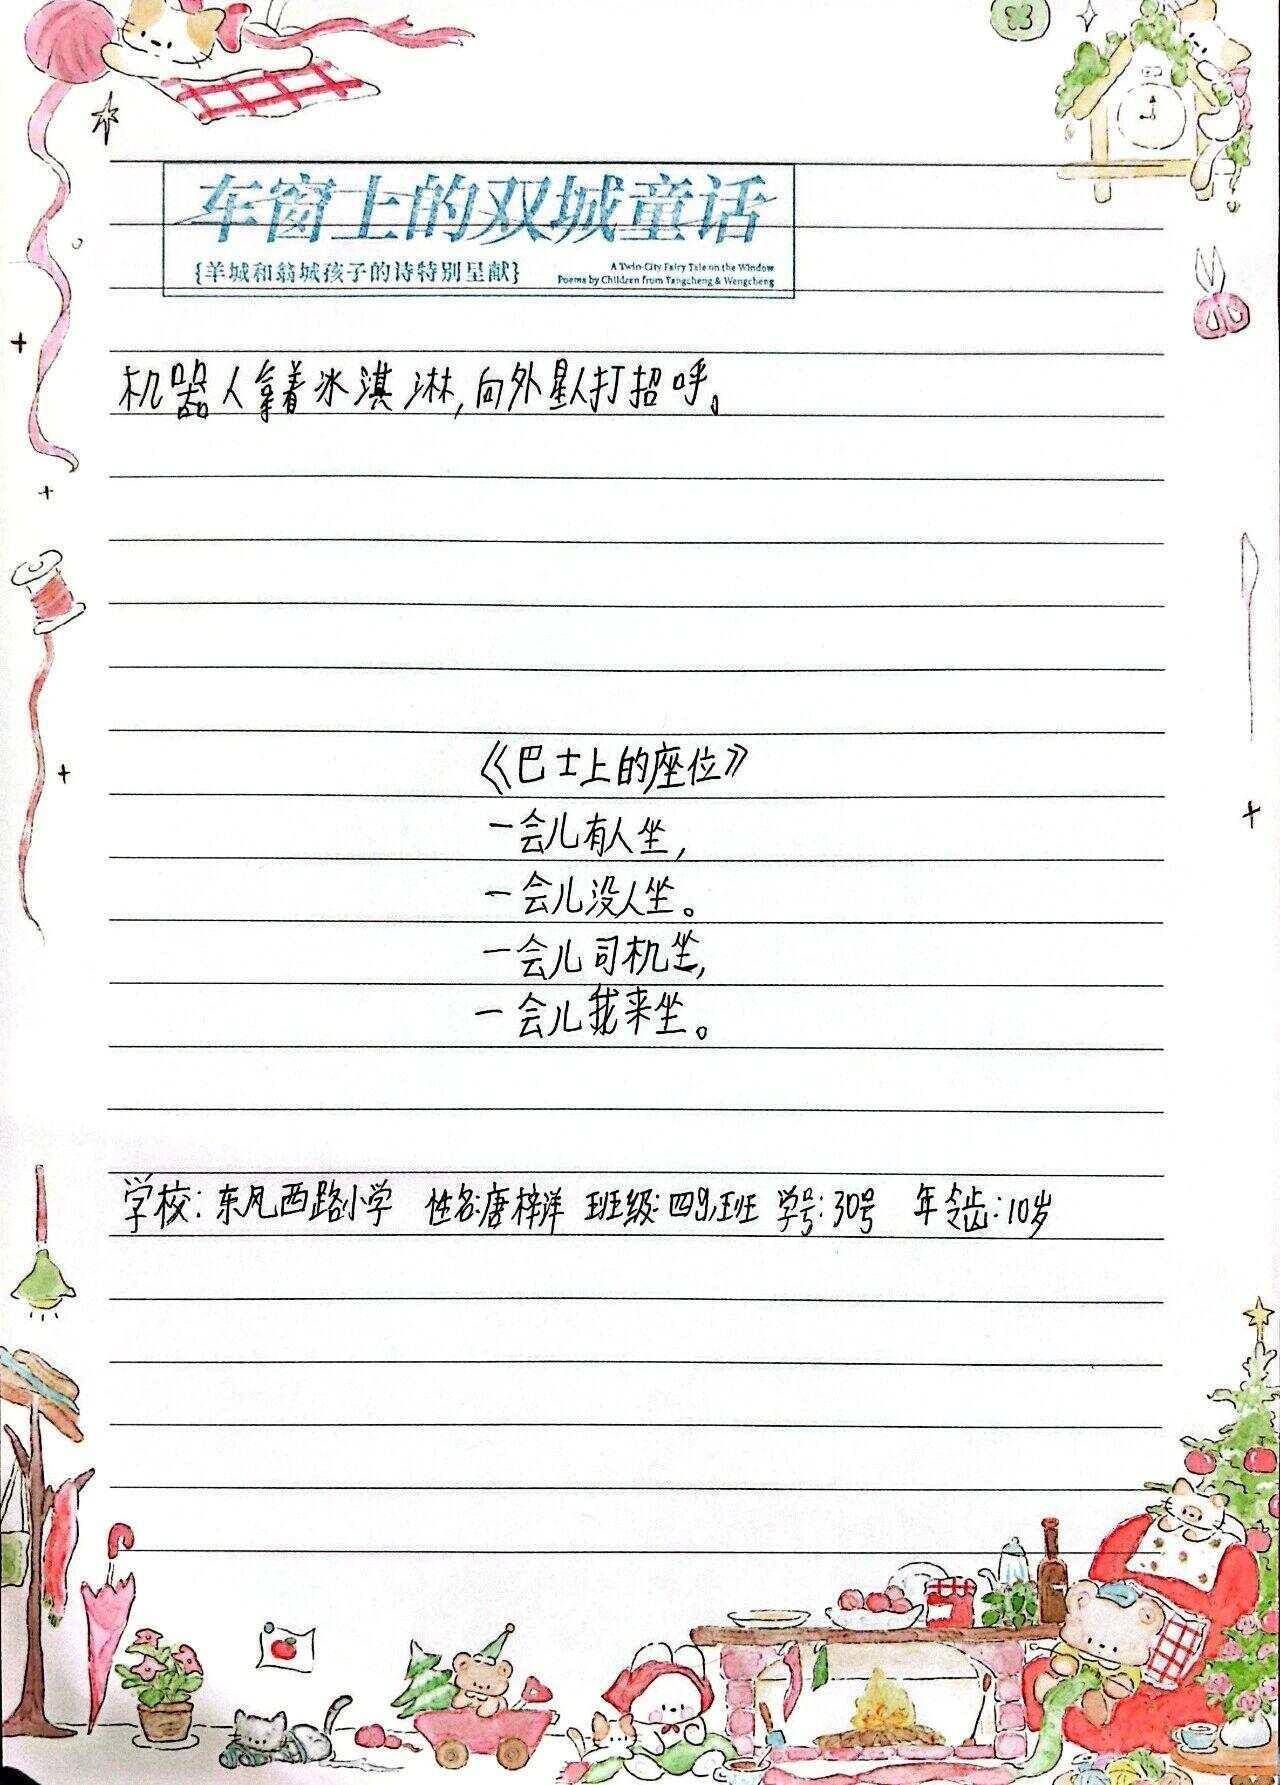 车窗上的双城童话
{羊城和翁城孩子的诗特别呈献}
A Twin-City Fairy Tale on the Window
Poems by Children from Yangcheng & Wengcheng
机器人拿着冰淇淋,向外星人打招呼。
《巴士上的座位》
一会儿有人坐,
一会儿没人坐。
一会儿司机坐,
一会儿我来坐。
学校:东风西路小学 姓名:唐梓洋 班级:四9班 学号:30号 年龄:10岁